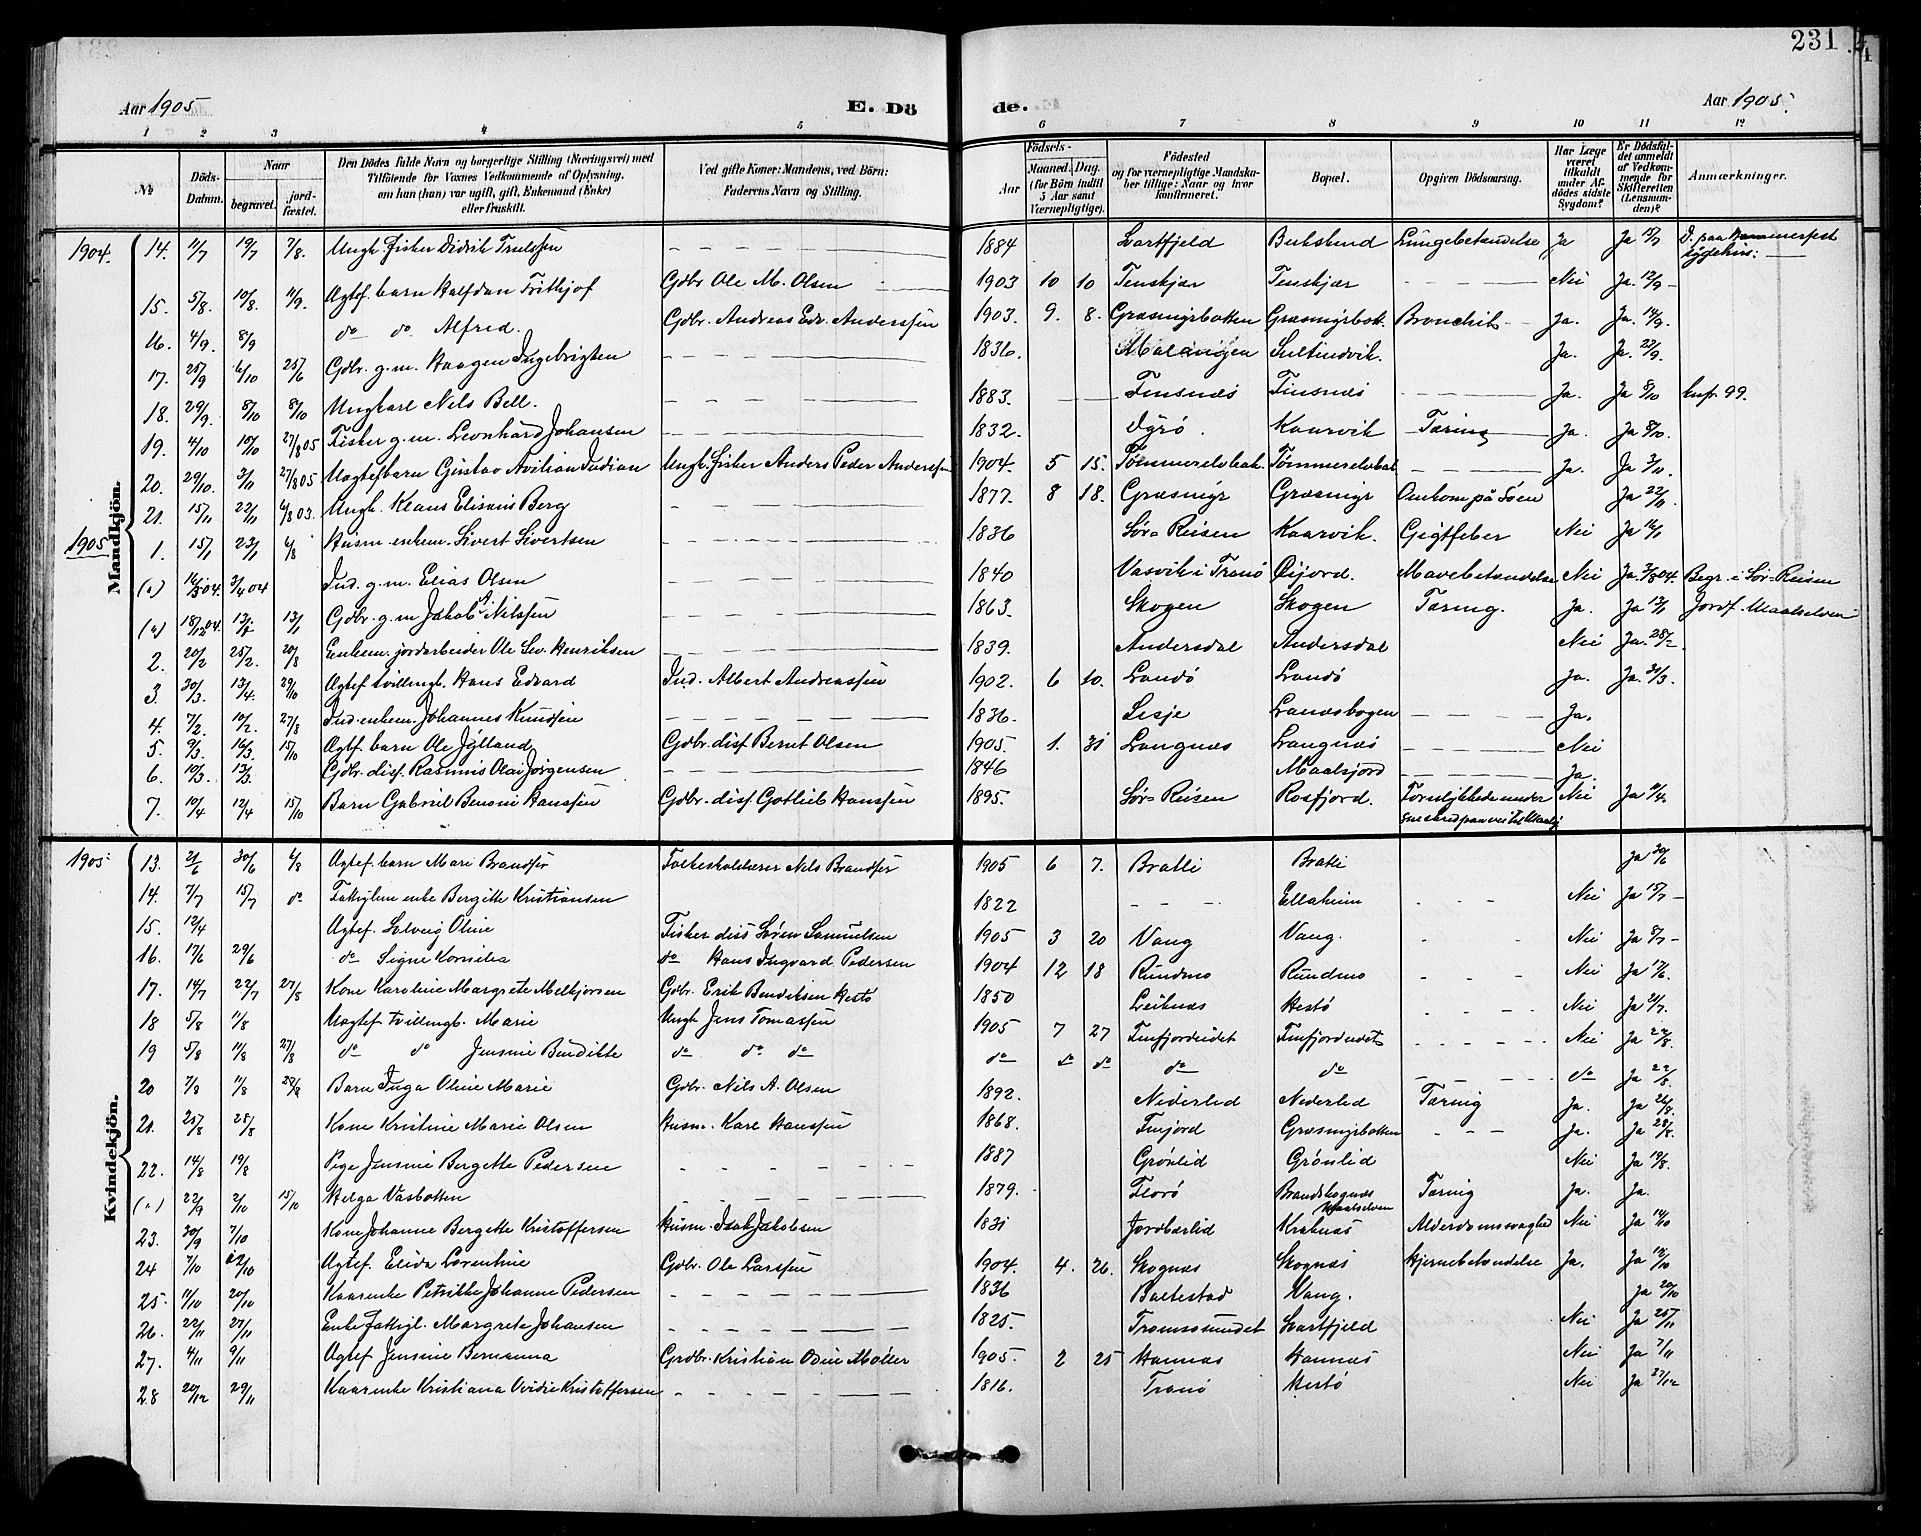 231
Aar 1905 E. Dö de. Aar 1905.
1 2 3 4 5 6 7 8 9 10 11 12
No Döds-Datum. Naar begravet. jordfæstet. Den Dödes fulde Navn og borgerlige Stilling (Næringsvei) med Tilföiende for Voxnes Vedkommende af Oplysning, om han (hun) var ugift, gift, Enkemand (Enke) eller fraskilt. Ved gifte Koner: Mandens, ved Börn: Faderens Navn og Stilling. Födsels- Aar Maaned. Dag. (for Börn indtil 5 Aar samt Værnepligtige). Födested og for værnepligtige Mandskaber tillige: Naar og hvor konfirmeret. Bopæl. Opgiven Dödsaarsag. Har Læge været tilkaldt under Afdödes sidste Sygdom? Er Dödsfaldet anmeldt af Vedkommende for Skifteretten (Lensmanden)? Anmærkninger.
Mandkjön.
1904. 14. 11/7 19/7 7/8. Ungk. fisker Didrik Trulssen 1884 Lartfjeld Lungebetændelse Ja Ja 15/7 D. paa Hammerfest sygehus:
15. 5/8. 10/8. 11/9. Ægtef. barn Halfdan Frithjof Gdbr. Ole M. Olsen 1903 10 10 Tenskjær Tenskjær Nei Ja. 12/9
16. 4/9. 8/9 do do Alfred. Gdbr. Andreas Edv. Anderssen 1903. 9. 8. Græsmyrbotten Græsmyrbot. Bronchit Ja. Ja. 14/9.
17. 25/9 6/10 25/6 Gdbr. g.m. Haagen Ingebrigten 1836. Sultindvik. Ja. Ja. 22/9.
18. 29/9. 8/10 8/10 Ungkarl Nils Bell. 1883. Finsnæs Finsnæs Ja. Ja 8/10 Knfr. 99.
19. 4/10 10/10 27/8 05 Fisker g.m. Leonhard Johansen 1832. Dyrø. Kaarvik Tæring Ja. Ja 8/10.
20. 29/10. 3/11 27/8 05 Uægtef. barn Gustav Avilian Indian Ungk. fisker Anders Peder Anderssen 1904. 5 15. Tømmerelvbak. Tømmerelvbak Ja. Ja 3/11.
21. 15/11 22/11 6/8 03. Ungk. Klaus Elisæus Berg 1877. 8 18. Græsmyr Græsmyr Omkom på søen Ja 22/11
1905 1. 15/1 23/1 6/8 Husm. enkem. Sivert Sivertsen 1836 Sør-Reisen Kaarvik. Gigtfeber Nei Ja 16/1
16/3 04. 3/4 04 Ind. g.m. Elias Olsen 1840 Vasvik i Tranø Øijord. Mavebetændelse Nei Ja. 3/8 04. Begr. i Sør-Reisen
18/12 04. 13/1 13/1 Gdbr. g.m. Jakob A. Nilssen 1863. Skogen Skogen Tæring. Ja. Ja 12/1 Jordf. Maalselven
2. 20/2 25/2. 20/8 Enkem. jordarbeider Ole Sev. Henriksen 1839. Andersdal Andersdal Nei Ja. 28/2
3. 30/3. 13/4. 29/10 Ægtef. tvillingb. Hans Edvard Ind. Albert Andreassen 1902. 6 10. Landø Landø Ja. Ja 31/3.
4. 7/2. 10/2. 27/8 Ind. enkem. Johannes Knudsen 1836. Lesje Lanesbogen Ja.
5. 9/3. 16/3. 15/10 Ægtf. barn Ole Jylland Gdbr. diss. Bernt Olsen 1905. 1. 31 Langnæs Langnæs Nei
6. 10/3. 13/3. Gdbr. diss. Rasmus Olai Jørgensen 1846 Maalsjord Ja.
7. 10/4 12/4 15/10 Barn Gabriel Benoni Hanssen Gdbr. diss. Gotlieb Hanssen 1895. Sør-Reisen Rosfjord. Forulykkede under Nei Ja 11/4
Kvindekjön.
1905: 13. 21/6 30/6 6/8 Ægtef. barn Mari Brandser Folkeskolelærer Nils Brandser 1905 6 7. Bratli Bratli Ja 30/6
14. 7/7 15/7 do Fattiglem enke Bergitte Kristiansen 1822 Ellaheim Nei Ja 15/7
15. 12/4 Ægtef. Solveig Oline Fisker diss Søren Samuelsen 1905 3 20 Vang Vang. Nei Ja 8/7
16. 17/6 29/6 do Signe Kornelia do Hans Ingvard Pedersen 1904 12 18 Rundmo Rundmo Nei Ja 17/6.
17. 14/7 22/7 27/8 Kone Karoline Margrete Melkjorsen Gdbr. Erik Bendiksen Hestø 1850 Leiknæs Hestø Nei Ja 21/7.
18 5/8 11/8 Uægtef. tvillingb. Marie Ungk Jens Tomassen 1905 7 27 Finfjordeidet Finfjordeidet Nei Ja 22/8.
19 5/8 11/8 27/8 do do Jensine Bendikte do do do do do do do do do Ja 22/8.
20 7/8 11/8 Barn Inga Oline Marie Gdbr. Nils A. Olsen 1892. Nederlid Nederlid Tæring Ja. Ja 26/8.
21. 25/8 28/8 Kone Kristine Marie Olsen Husm. Karl Hanssen 1868. Finjord Græsmyrbotten Ja. Ja 28/8.
22. 14/8 19/8 Pige Jensine Bergette Pedersen 1887 Grønlid Grønlid Nei Ja 19/8.
22/9 2/10 15/10 Helga Vasbotten 1879. Florø Brandskognæs Maalselven Tæring Ja. Ja.
23. 30/9 7/10 Kone Johanne Bergette Kristoffersen Husm. Isak Jakobsen 1831 Jordbærlid Kraknæs Alderdomssvaghed Nei Ja 14/10
24 7/10 12/10 Ægtef. Elida Lorentine Gdbr. Ole Larssen 1904. 4. 26. Skognæs Skognæs Hjernebetændelse Ja. Ja 12/10
25. 11/10 20/10 Kaarenke Petrikke Johanne Pedersen 1836 Baltestad Vang. Ja 20/10
26. 22/11 27/11 Enke fattigl. Margrete Johansen 1825. Tromsøsundet Lartfjeld Nei Ja 25/11
27. 4/11 9/11 Ægtef Jensine Bernanna Grdbr. Kristian Odin Møller 1905. 2 25 Hannæs Hannæs Nei Ja 7/11
28 20/12 29/11 Kaarenke Kristiana Ovidie Kristoffersen 1816. Tranø Hestø Nei Ja 27/12